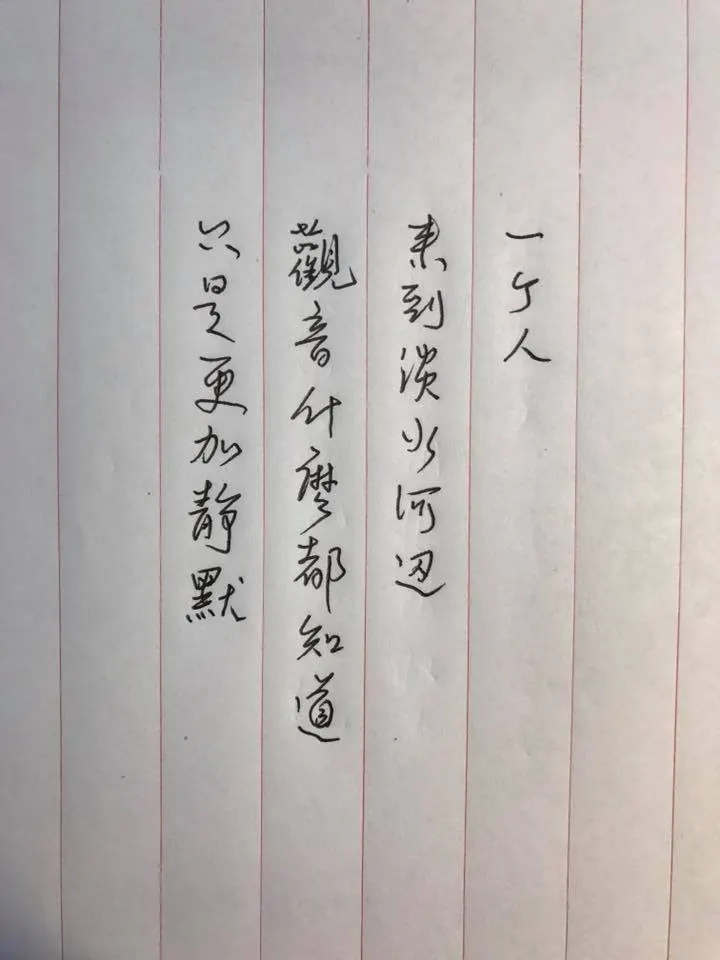 一个人
来到淡水河边
觀音什麼都知道
只是更加靜默